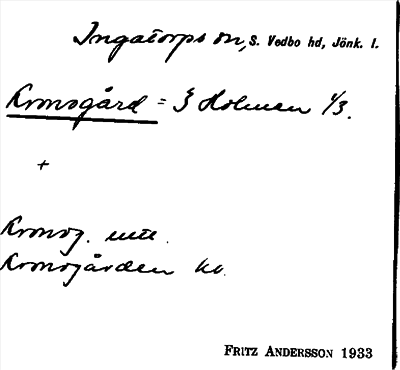 Ingatorps sn, S. Vedbo hd, Jönk. l.
Kronogård = i Holmen 1/3.
+
Kronog. utt.
Kronogården kv.
FRITZ ANDERSSON 1933